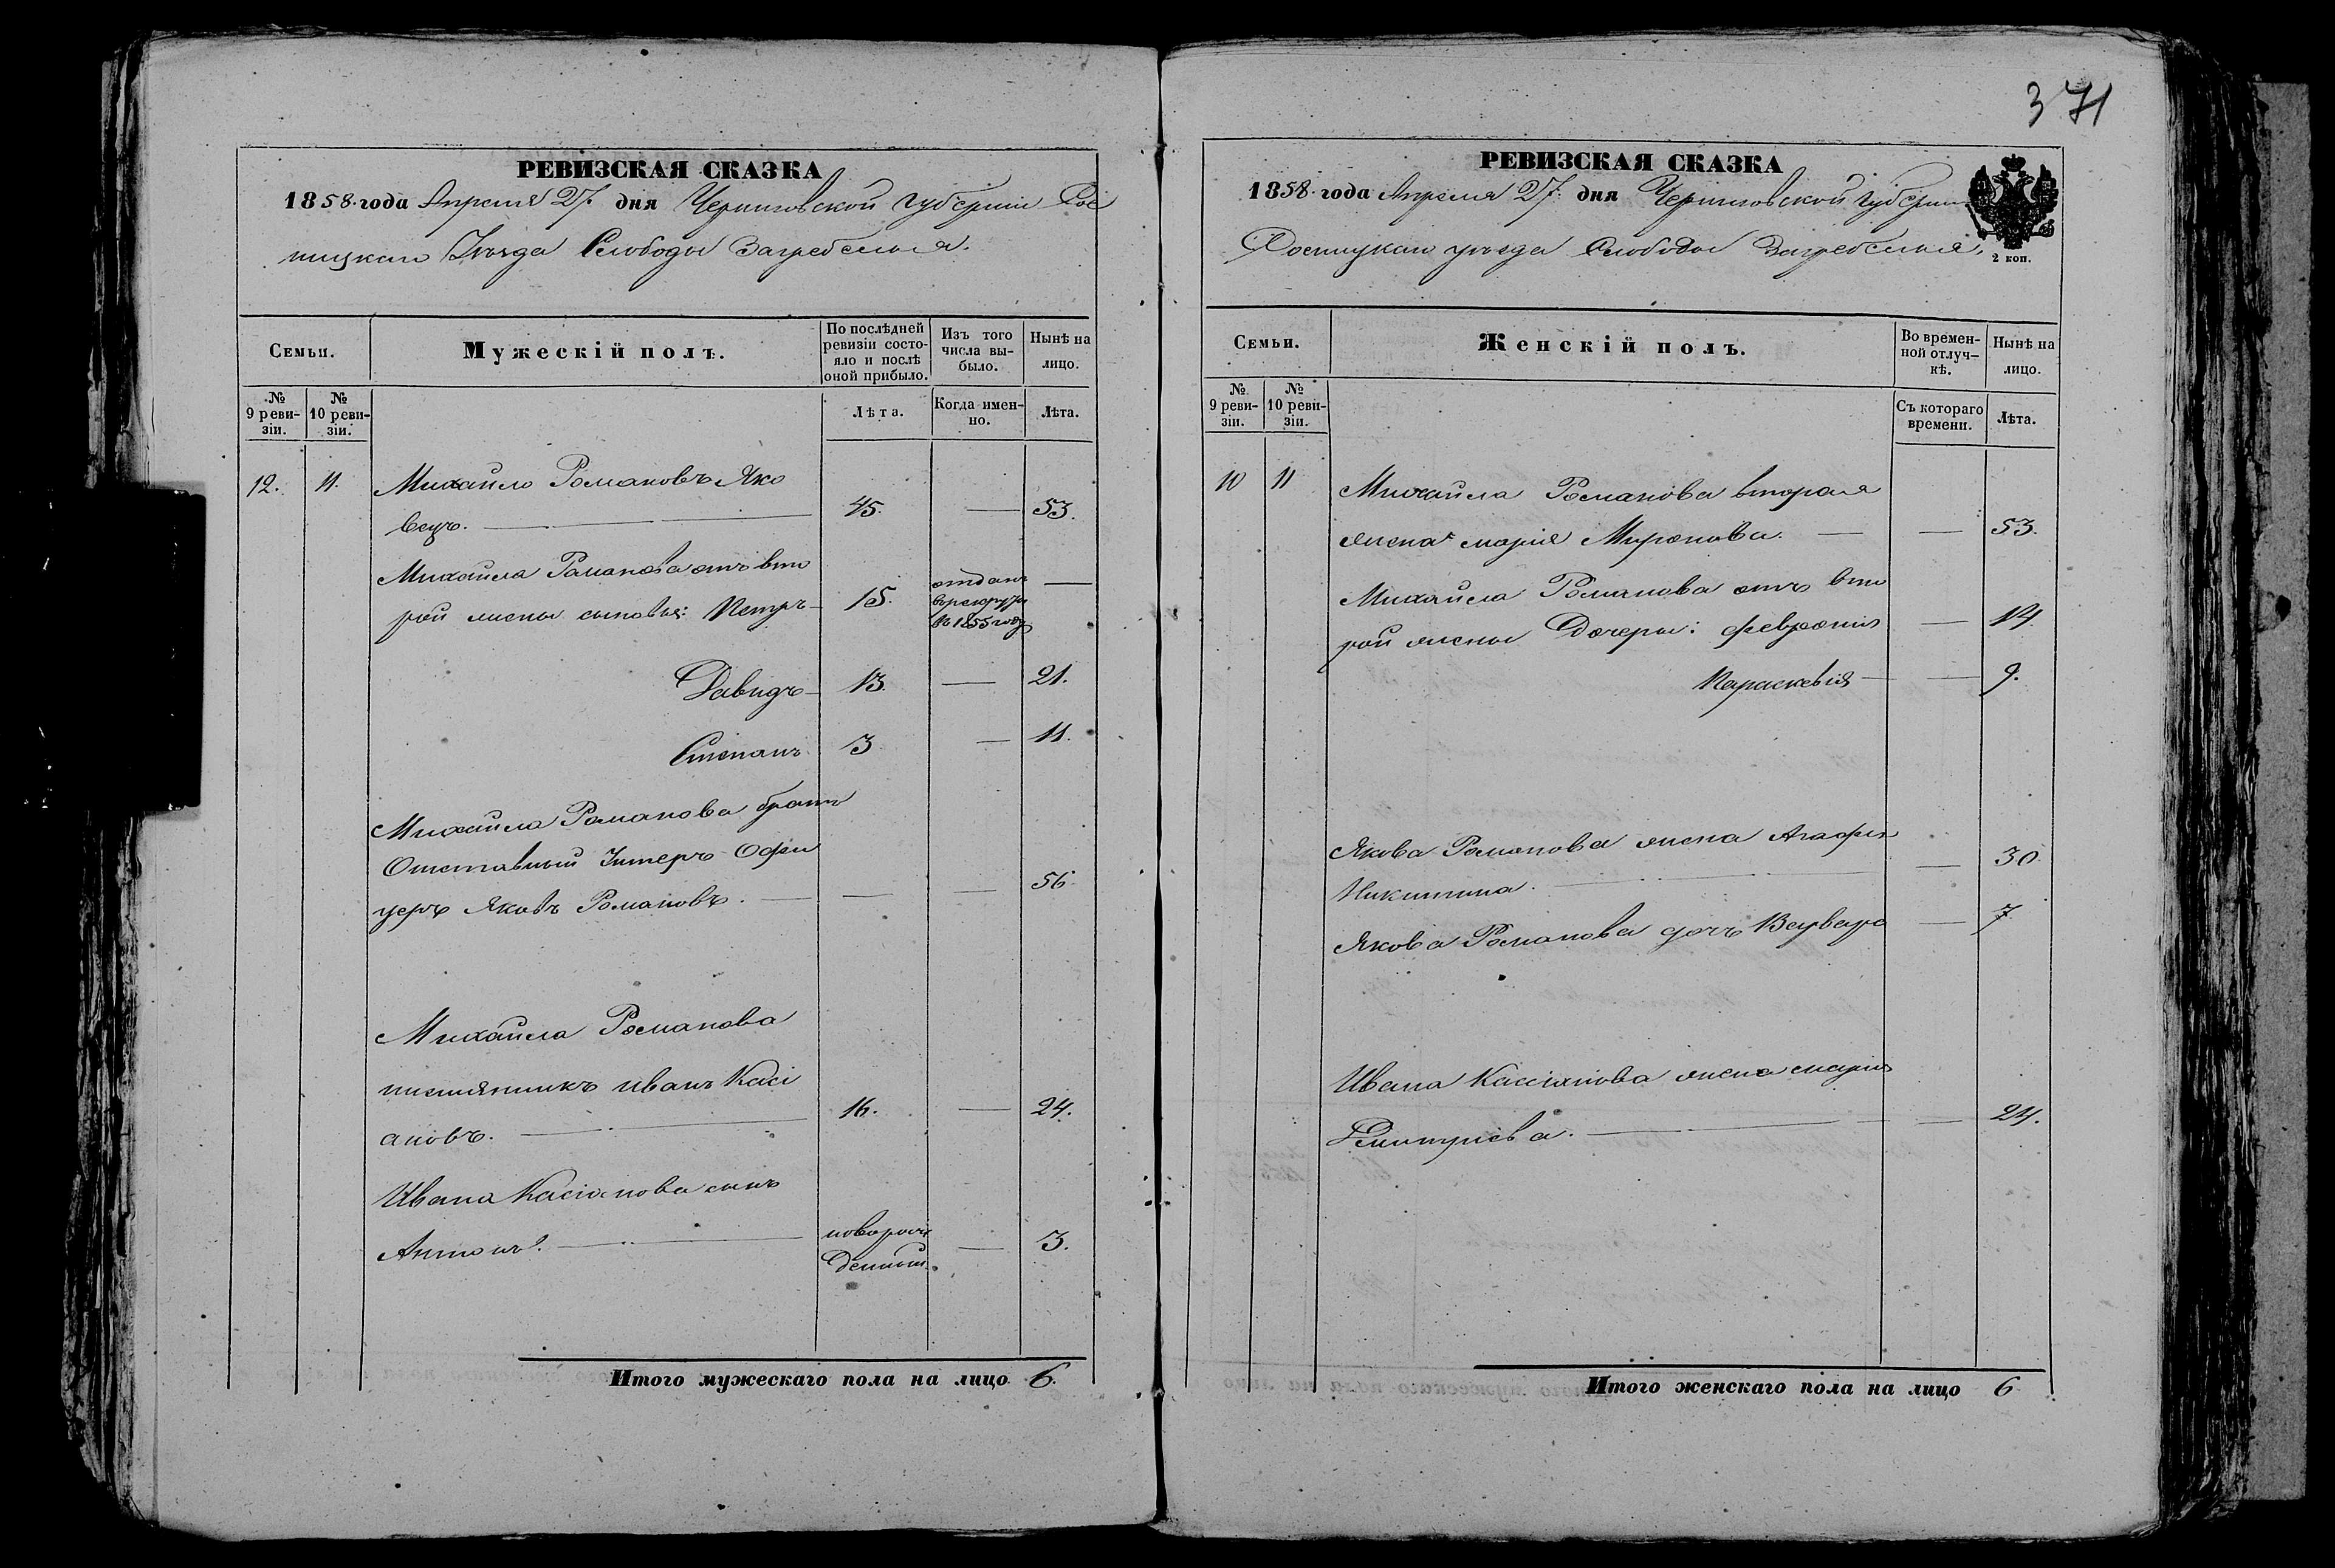 371
РЕВИЗСКАЯ СКАЗКА
1858 года Апреля 27 дня Черниговской губерніи Сос
ницкаго Уѣзда Слободы Загребелья.
Семьи.
Мужескій полъ.
По послѣдней ревизіи состояло и послѣ оной прибыло.
Изъ того числа выбыло.
Нынѣ на лицо.
№ 9 ревизіи.
№ 10 ревизіи.
Лѣта.
Когда именно.
Лѣта.
12. 11. Михайло Романовъ Яко
вецъ. 45. — 53.
Михайла Романова отъ вто
рой жены сыновья: Петръ 15. отданъ в рекруты въ 1855 году —
Давидъ 13. — 21.
Степанъ 3 — 11.
Михайла Романова братъ
Отставный Унтеръ Офи
церъ Яковъ Романовъ. — — 56
Михайла Романова
племянникъ Иванъ Касі
ановъ. 16. — 24.
Ивана Касіанова сынъ
Антонъ. новорож
денный. — 3.
Итого мужескаго пола на лицо 6.
РЕВИЗСКАЯ СКАЗКА
1858 года Апреля 27 дня Черниговской губерніи
Сосницкаго уѣзда Слободы Загребелья.
2 коп.
Семьи.
Женскій полъ.
Во временной отлучкѣ.
Нынѣ на лицо.
№ 9 ревизіи.
№ 10 ревизіи.
Съ котораго времени.
Лѣта.
10 11 Михайла Романова вторая
жена Марія Миронова. — — 53.
Михайла Романова отъ вто
рой жены Дочери: Февронія — 14
Параскевія — 9.
Якова Романова жена Агафія
Никитина. — 30
Якова Романова дочь Варвара — 7
Ивана Кассіянова жена Марія
Дмитріева. — 24.
Итого женскаго пола на лицо 6